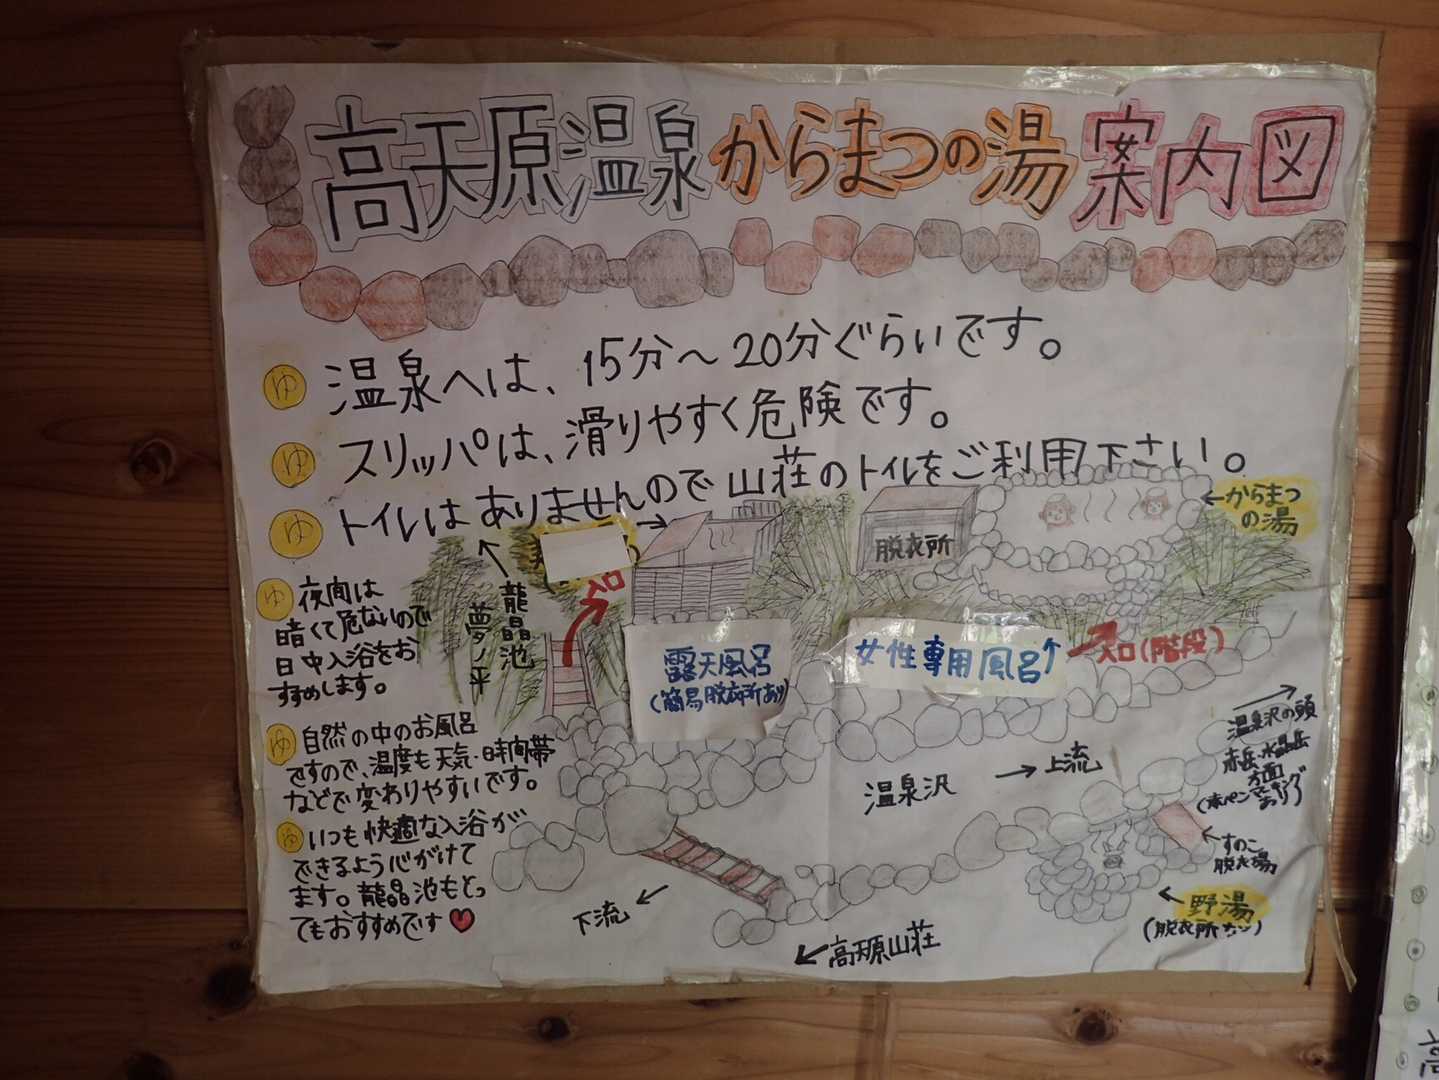 高天原温泉からまつの湯案内図
ゆ 温泉へは、15分～20分ぐらいです。
ゆ スリッパは、滑りやすく危険です。
ゆ トイレはありませんので山荘のトイレをご利用下さい。
ゆ 夜間は
暗くて危ないので
日中入浴をお
すすめします。
ゆ 自然の中のお風呂
ですので、温度も天気・時間帯
などで変わりやすいです。
ゆ いつも快適な入浴が
できるよう心がけて
ます。龍晶池もとっ
てもおすすめです
龍晶池
夢ノ平
入口
露天風呂
(簡易脱衣所あり)
脱衣所
←からまつ
の湯
女性専用風呂↑
入口(階段)
温泉沢
→上流
下流
高天原山荘
温泉沢の頭
赤岳・水晶岳
方面
すのこ
脱衣場
野湯